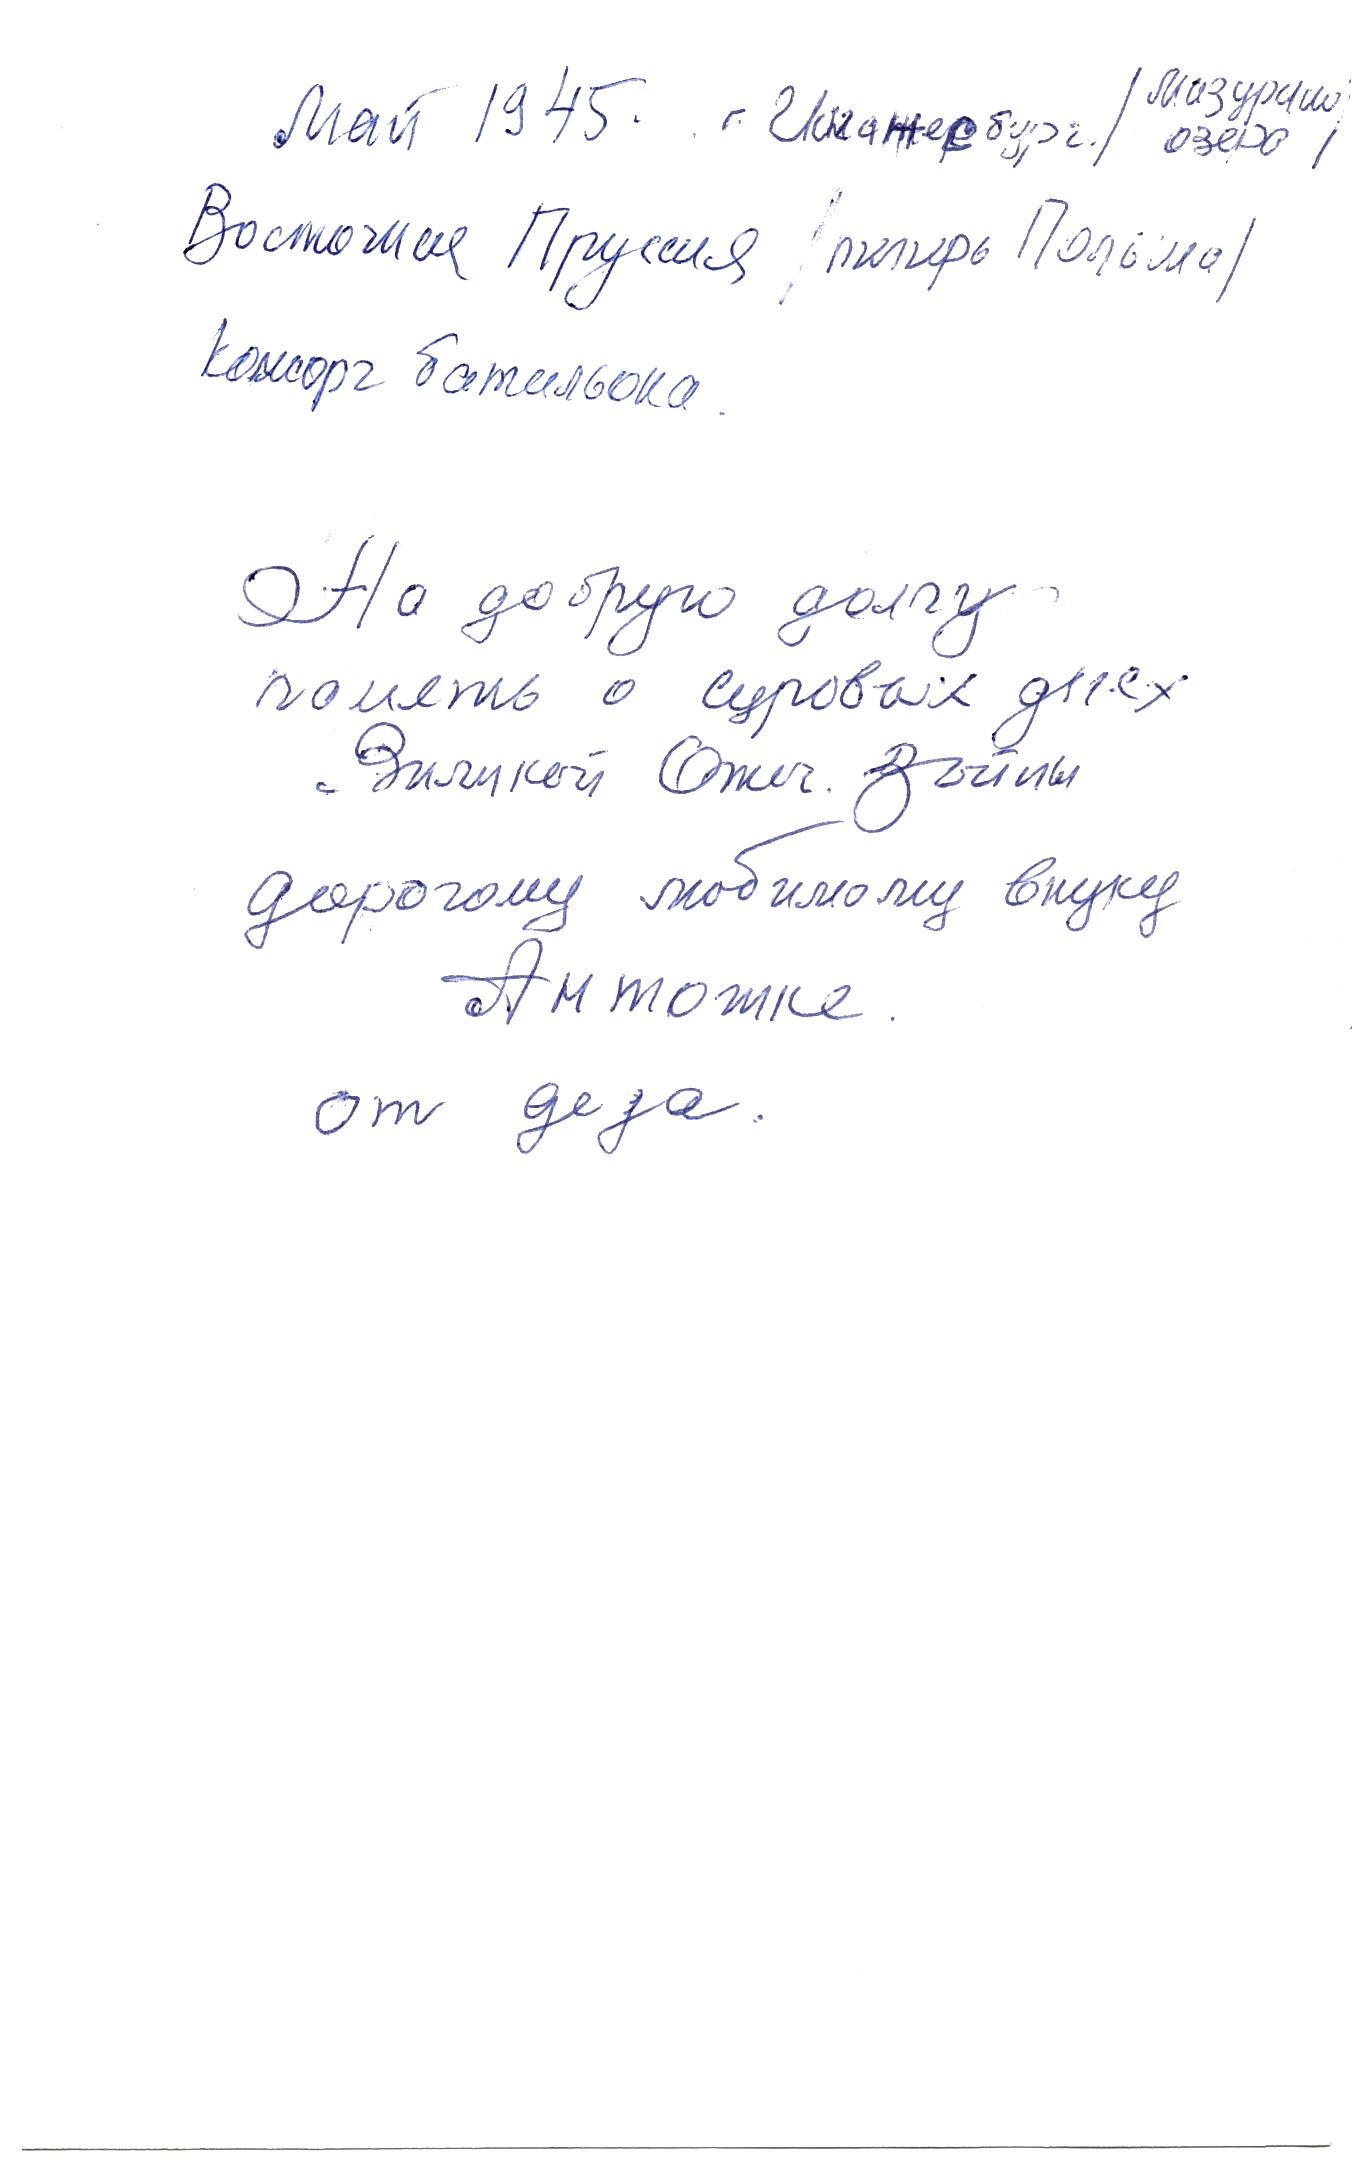 Май 1945. г. /Мазурско
озеро/
Восточная Пруссия /теперь Польша/
Комсорг батальона.
На добрую долгу
память о суровых днях
Великой Отеч. Войны
дорогому любимому внуку
Антошке.
от деда.